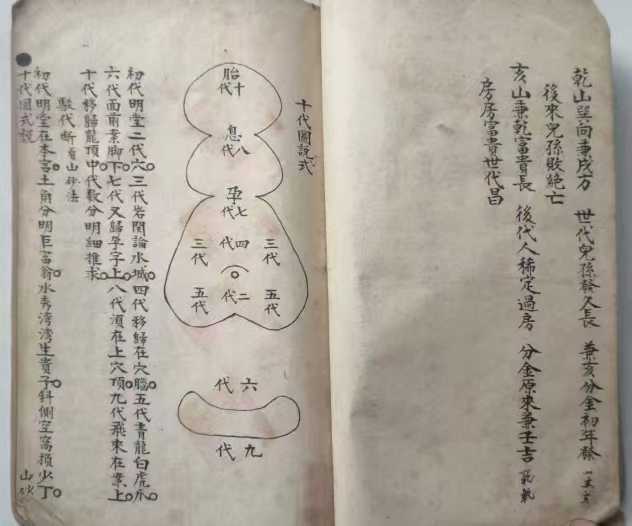 乾山巽向 戌方 世代兒孫 久長 兼亥分金初年發
後來兒孫敗絕亡
亥山兼乾富貴長 後代人稀定過房 分金原來兼壬吉
房房富貴世代昌
十代圖說式
胎十代
息八代
孕七代
四代
三代
三代
二代
五代
五代
六代
九代
初代明堂二代穴。三代岩関論水城。四代移歸在穴腦。五代青龍白虎爪。
六代面前案脚下。七代又歸孕字上。八代須在上穴頂。九代飛來在案上。
十代移歸龍頂中。代数分明細推求。
代断 山砂法
初代明堂在本宮。土角分明巨富翁。水秀湾湾生貴子。斜側空窩損少丁。
十代圖式說